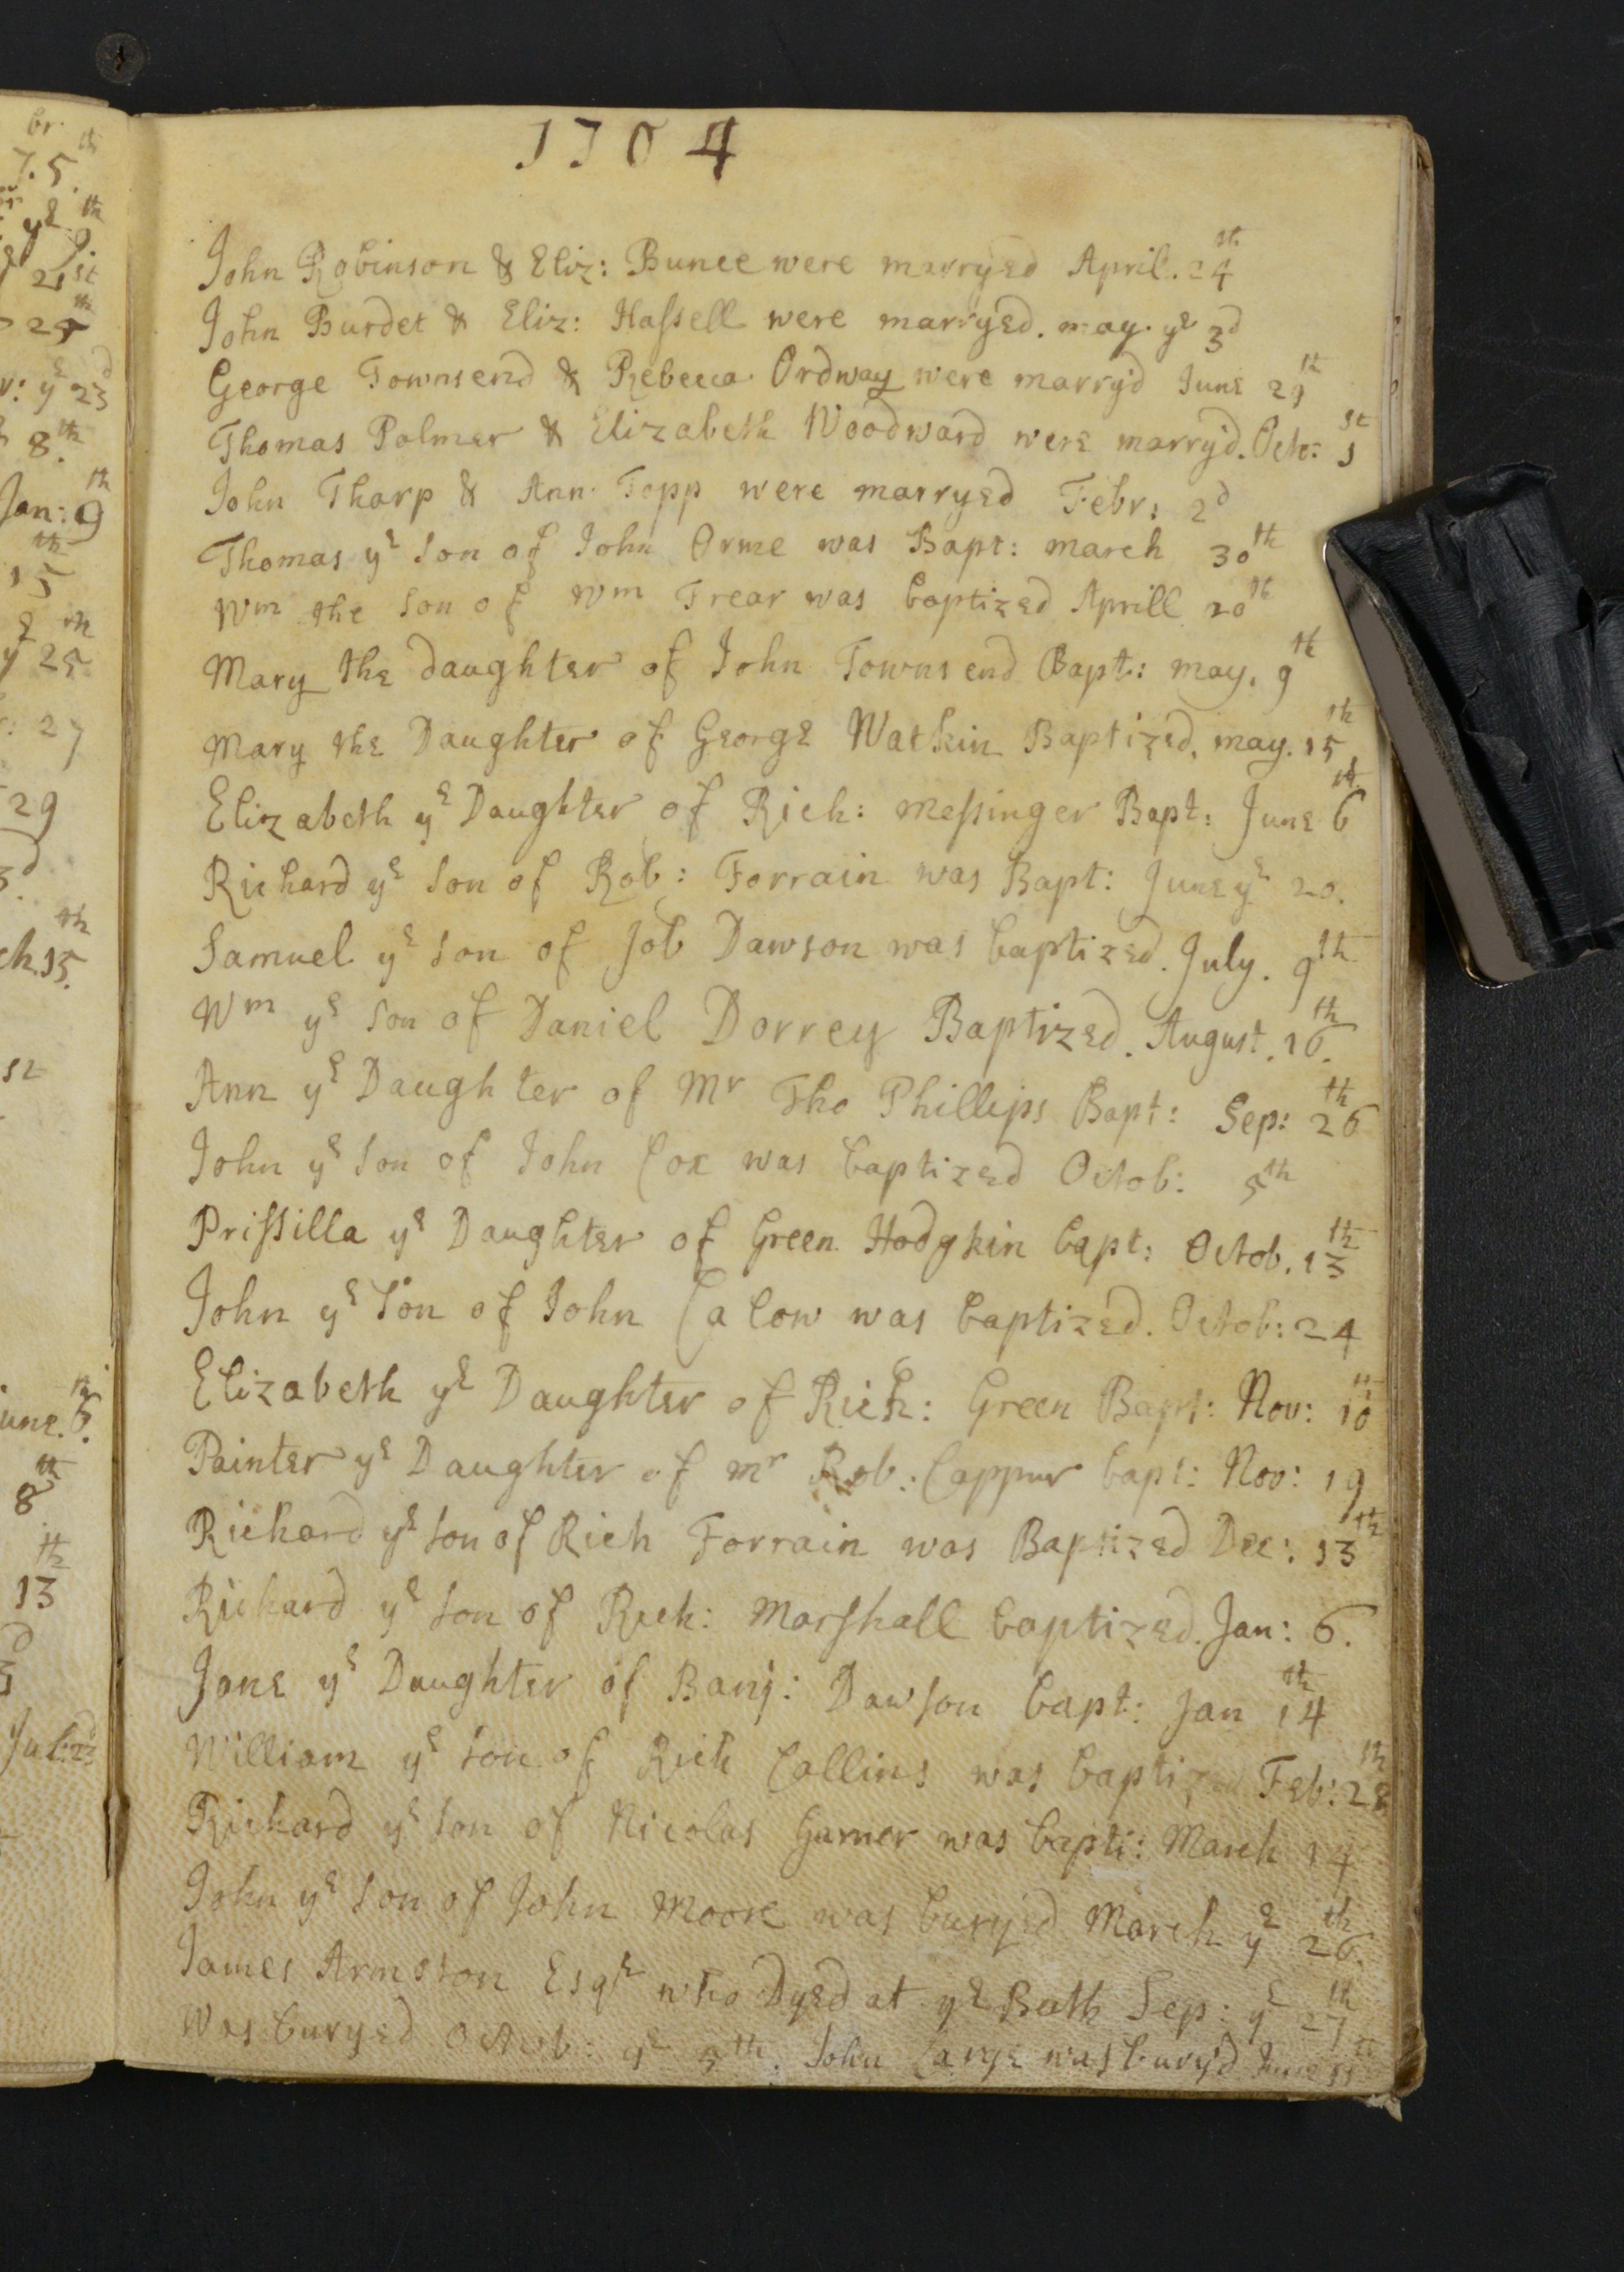 br.
7.5.th
ye 9.th
21st
24th
r: ye 23d
8.th
Jan: 9th
15th
ye 25th
: 27
29
3d
ch.15.th
st
une.6.th
8th
13th
Jul:22d
1704
John Robinson & Eliz: Bunce were marryed April. 24th
John Burdet & Eliz: Haſsell were marryed. may. ye 3d
George Townsend & Rebecca Ordway were marry'd June 29th
Thomas Palmer & Elizabeth Woodward were marry'd. Octo: 1st
John Tharp & Ann Topp were marryed Febr: 2d
Thomas ye Son of John Orme was Bapt: march 30th
Wm the Son of Wm Frear was baptized Aprill 20th
Mary the daughter of John Townsend Bapt: may. 9th
Mary the Daughter of George Watkin Baptized. may. 15th
Elizabeth ye Daughter of Rich: meſsinger Bapt: June 6th
Richard ye Son of Rob: Forrain was Bapt: June ye 20.
Samuel ye Son of Job Dawson was baptized. July. 9th
Wm ye Son of Daniel Dorrey Baptized. August. 16.th
Ann ye Daughter of Mr Tho Phillips Bapt: Sep: 26th
John ye Son of John Cox was baptized Octob: 5th
Priſsilla ye Daughter of Green Hodgkin bapt: Octob. 13th
John ye Son of John Calow was baptized. Octob: 24
Elizabeth ye Daughter of Rich: Green Bapt: Nov: 10th
Painter ye Daughter of mr Rob: Cappur bapt: Nov: 19
Richard ye Son of Rich Forrain was Baptized Dec: 13th
Richard ye Son of Rich: Marſhall baptized. Jan: 6.
Jane ye Daughter of Banj: Dawſon bapt: Jan 14th
William ye Son of Rich Collins was baptized Feb: 28th
Richard ye Son of Nicolas Garner was bapti: March 14
John ye Son of John Moore was buryed March ye 26.th
James Armston Esqr who Dyed at ye Bath Sep: ye 27th
Was buryed Octob: ye 5th. John Large was bury'd June 11th